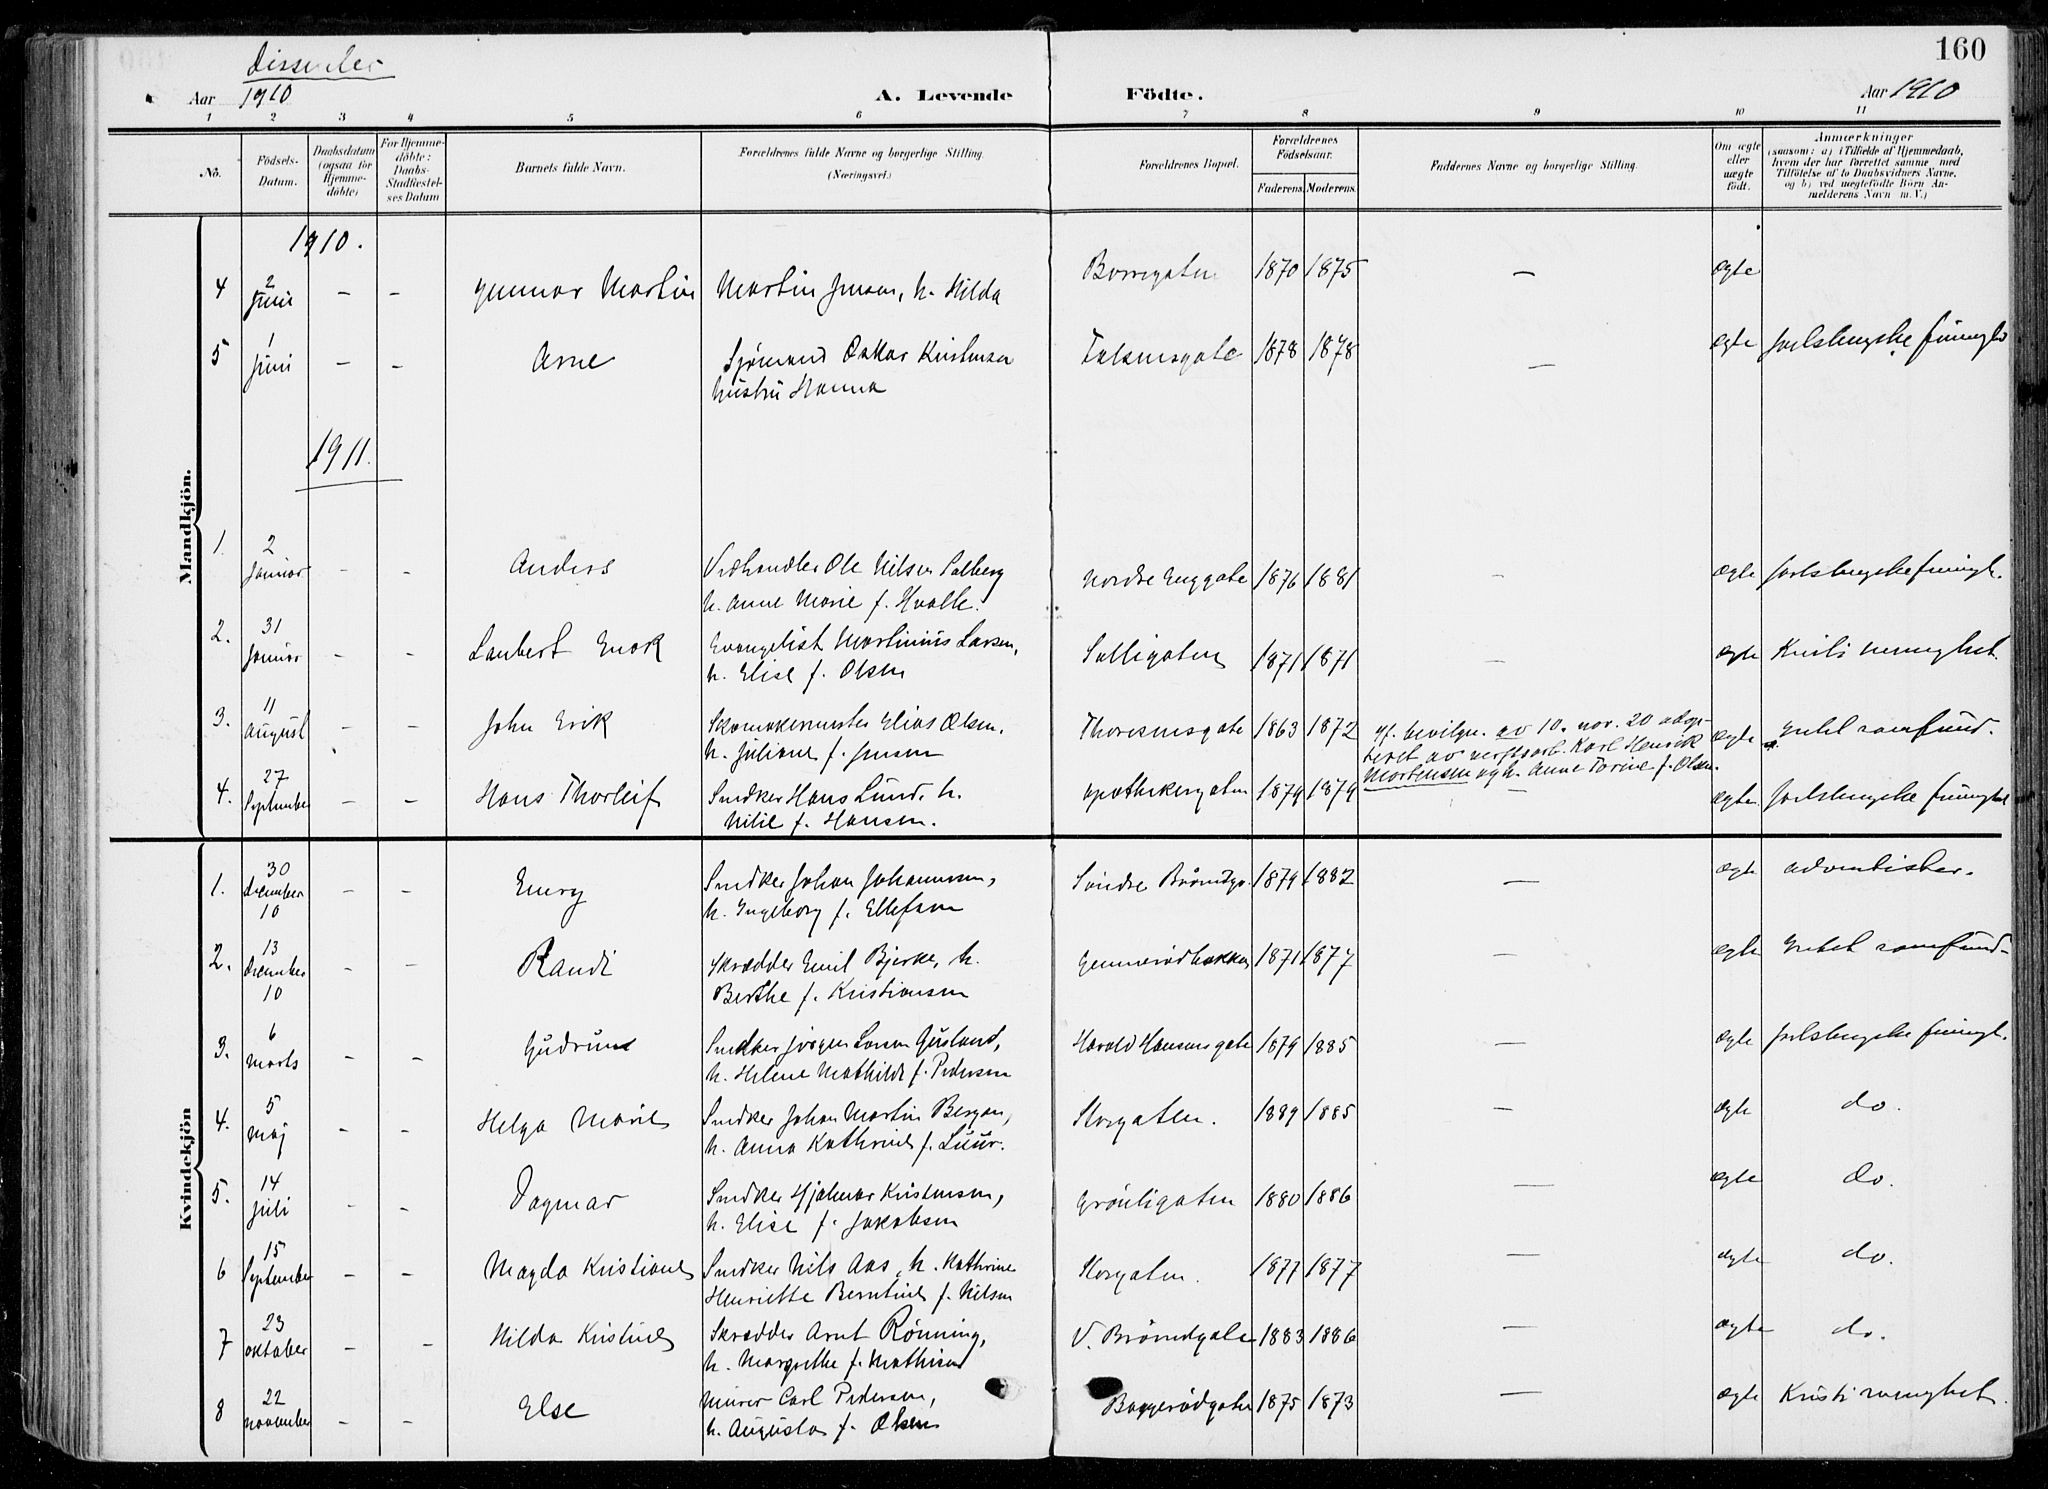 160
Dissenter
Aar 1910
A. Levende Födte.
Aar 1910
1 2 3 4 5 6 7 8 9 10 11
No.
Födsels-Datum.
Daabsdatum (ogsaa for Hjemme-döbte)
For Hjemme-döbte: Daabs-Stadfæstel-ses Datum
Barnets fulde Navn.
Forældrenes fulde Navne og borgerlige Stilling. (Næringsvei.)
Forældrenes Bopæl.
Forældrenes Födselsaar.
Faderens. Moderens.
Faddernes Navne og borgerlige Stilling.
Om ægte eller uægte født.
Anmærkninger
(saasom: a) i Tilfælde af Hjemmedaab,
hvem der har forrettet samme, med
Tilföielse af to Daabsvidners Navne,
og b) ved uegtefödte Börn An-
melderens Navn m.V.)
Mandkjön.
1910.
4 2 Juni – – Gunnar Martin Martin Jensen, h. Hilda Borregaten 1870 1875 — ægte
5 1 Juni – – Arne Sjömand Oskar Kristensen
hustru Hanna 1878 1878 — ægte
1911.
1. 2 Januar – – Anders Vedhandler Ole Nilsen Solberg
h. Anne Marie f. Hvalle. Nordre Enggate 1876 1881 – ægte
2. 31 Januar – – Lambert Enok Evangelist Martinius Larsen,
h. Elise f. Olsen Solligaten 1871 1871 – ægte Kristi menighet.
3. 11 August – – John Erik Skomakermester Elias Olsen,
h. Juliane f. Jensen Thoresensgate 1863 1872 if. bevilgn. av 10. nov. 20 adop-
teret av verftsarb. Karl Henrik
Mortensen og h. Anne Torine f. Olsen. ægte samfund.
4. 27 September – – Hans Thorleif Snedker Hans Lund, h.
Milie f. Hansen. Apothekergaten 1879 1879 – ægte
Kvindekjön
1. 30 December 10 – – Emry Snedker Johan Johannesen,
h. Ingeborg f. Ellefsen Söndre 1879 1882 — ægte adventister.
2. 13 December 10 – – Randi Skrædder Emil Bjerke, h.
Berthe f. Kristiansen 1871 1877 — ægte samfund
3. 6 Marts – – Gudrun Snedker Jörgen Gusland,
h. Helene Mathilde f. Pedersen Harald Hansensgate 1879 1885 — ægte
4. 5 Maj – – Helga Marie Snedker Johan Martin Bergan,
h. Anna Kathrine f. Luur. Storgaten. 1889 1885 – ægte do.
5. 14 Juli – – Dagmar Snedker Hjalmar Kristensen,
h. Elise f. Jakobsen Grönligaten 1880 1886 — ægte do.
6 15 September – – Magda Kristiane Snedker Nils Aas, h. Kathrine
Henriette Berntine f. Nilsen Storgaten. 1877 1877 — ægte do.
7 23 Oktober – – Hilda Kristine Skrædder Arnt Rönning,
h. Margrethe f. Mathisen V. 1883 1886 — ægte do.
8 22 November – – Else Murer Carl Pedersen,
h. Augusta f. Olsen Baggerödgaten 1875 1873 — ægte Kristi menighet.